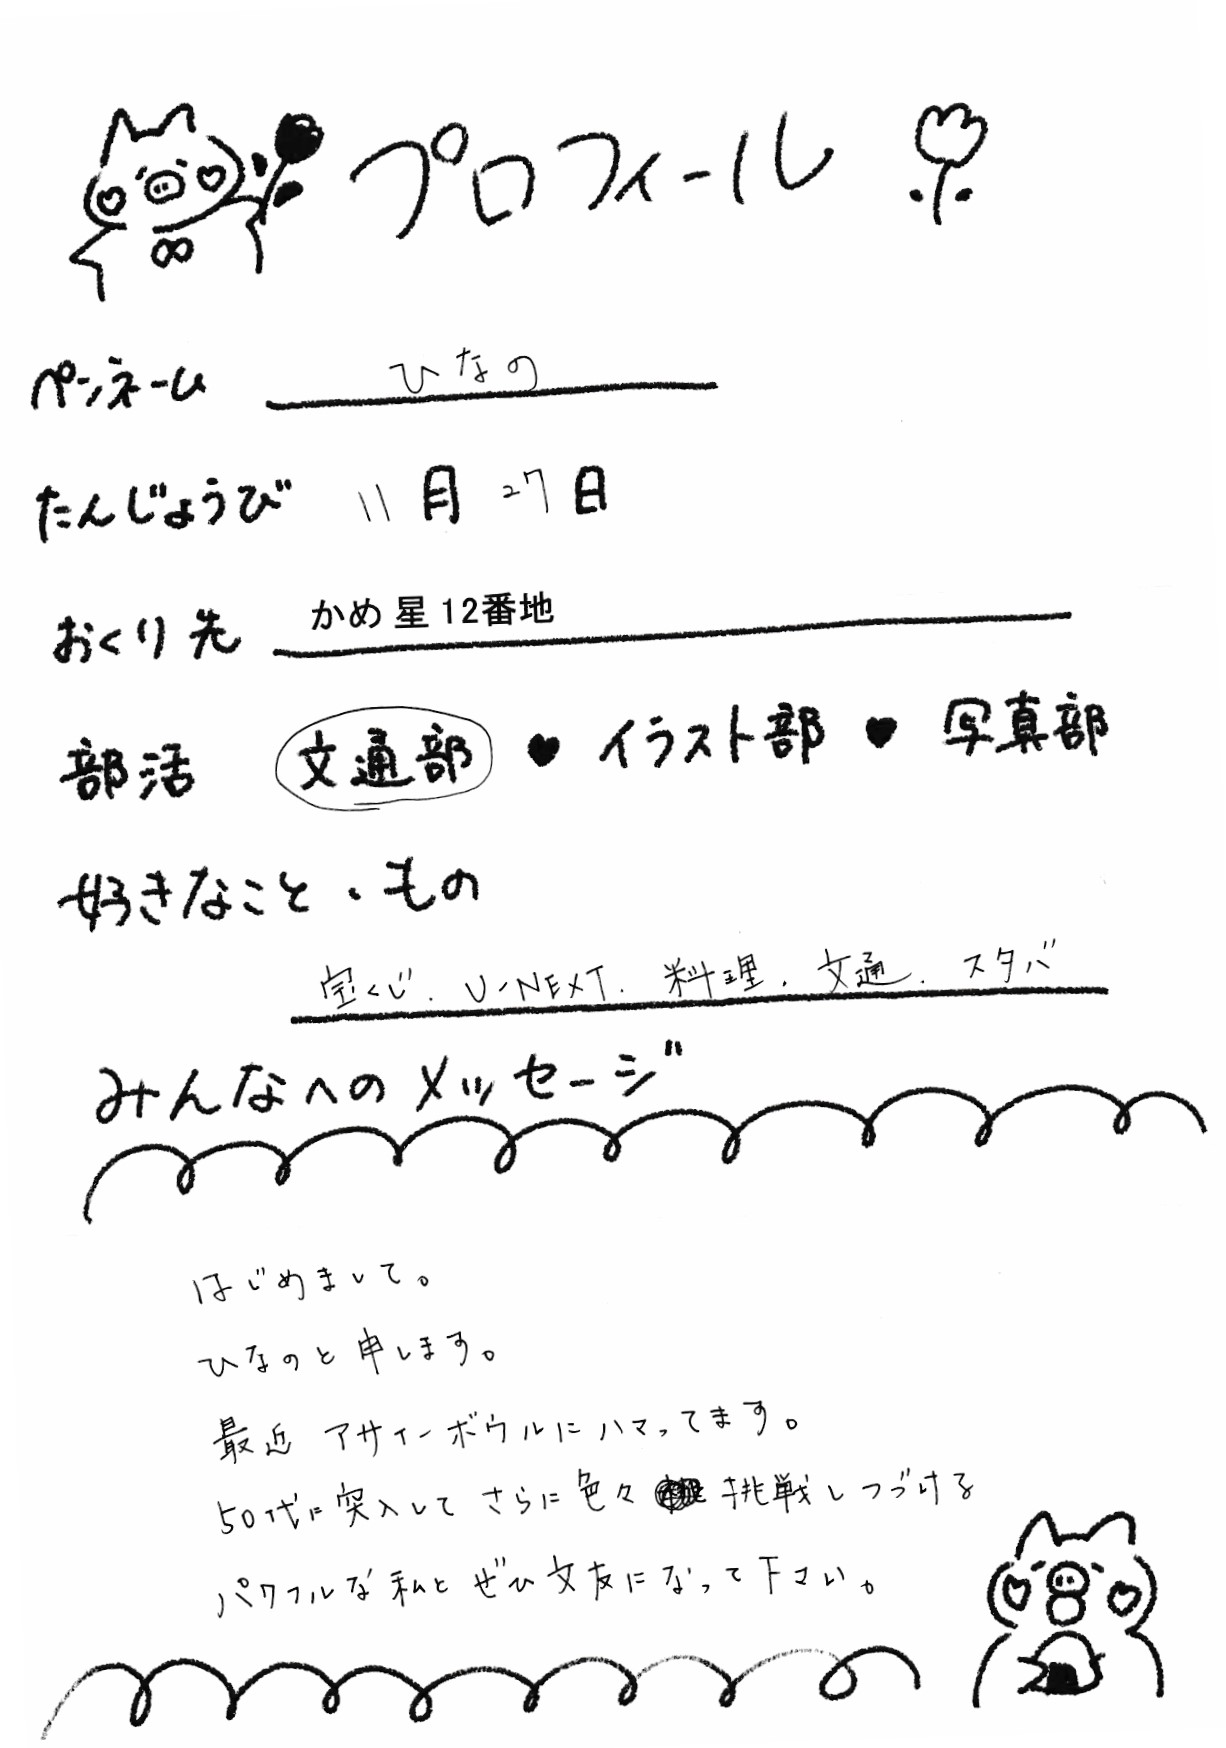 プロフィール
ペンネーム ひなの
たんじょうび 11月 27日
おくり先 かめ 星 12番地
部活 文通部 ♥ イラスト部 ♥ 写真部
好きなこと・もの
宝くじ. U-NEXT. 料理. 文通. スタバ
みんなへのメッセージ
はじめまして。
ひなのと申します。
最近 アサイーボウルにハマってます。
50代に突入して さらに色々 挑戦しつづける
パワフルな私と ぜひ文友になって下さい。